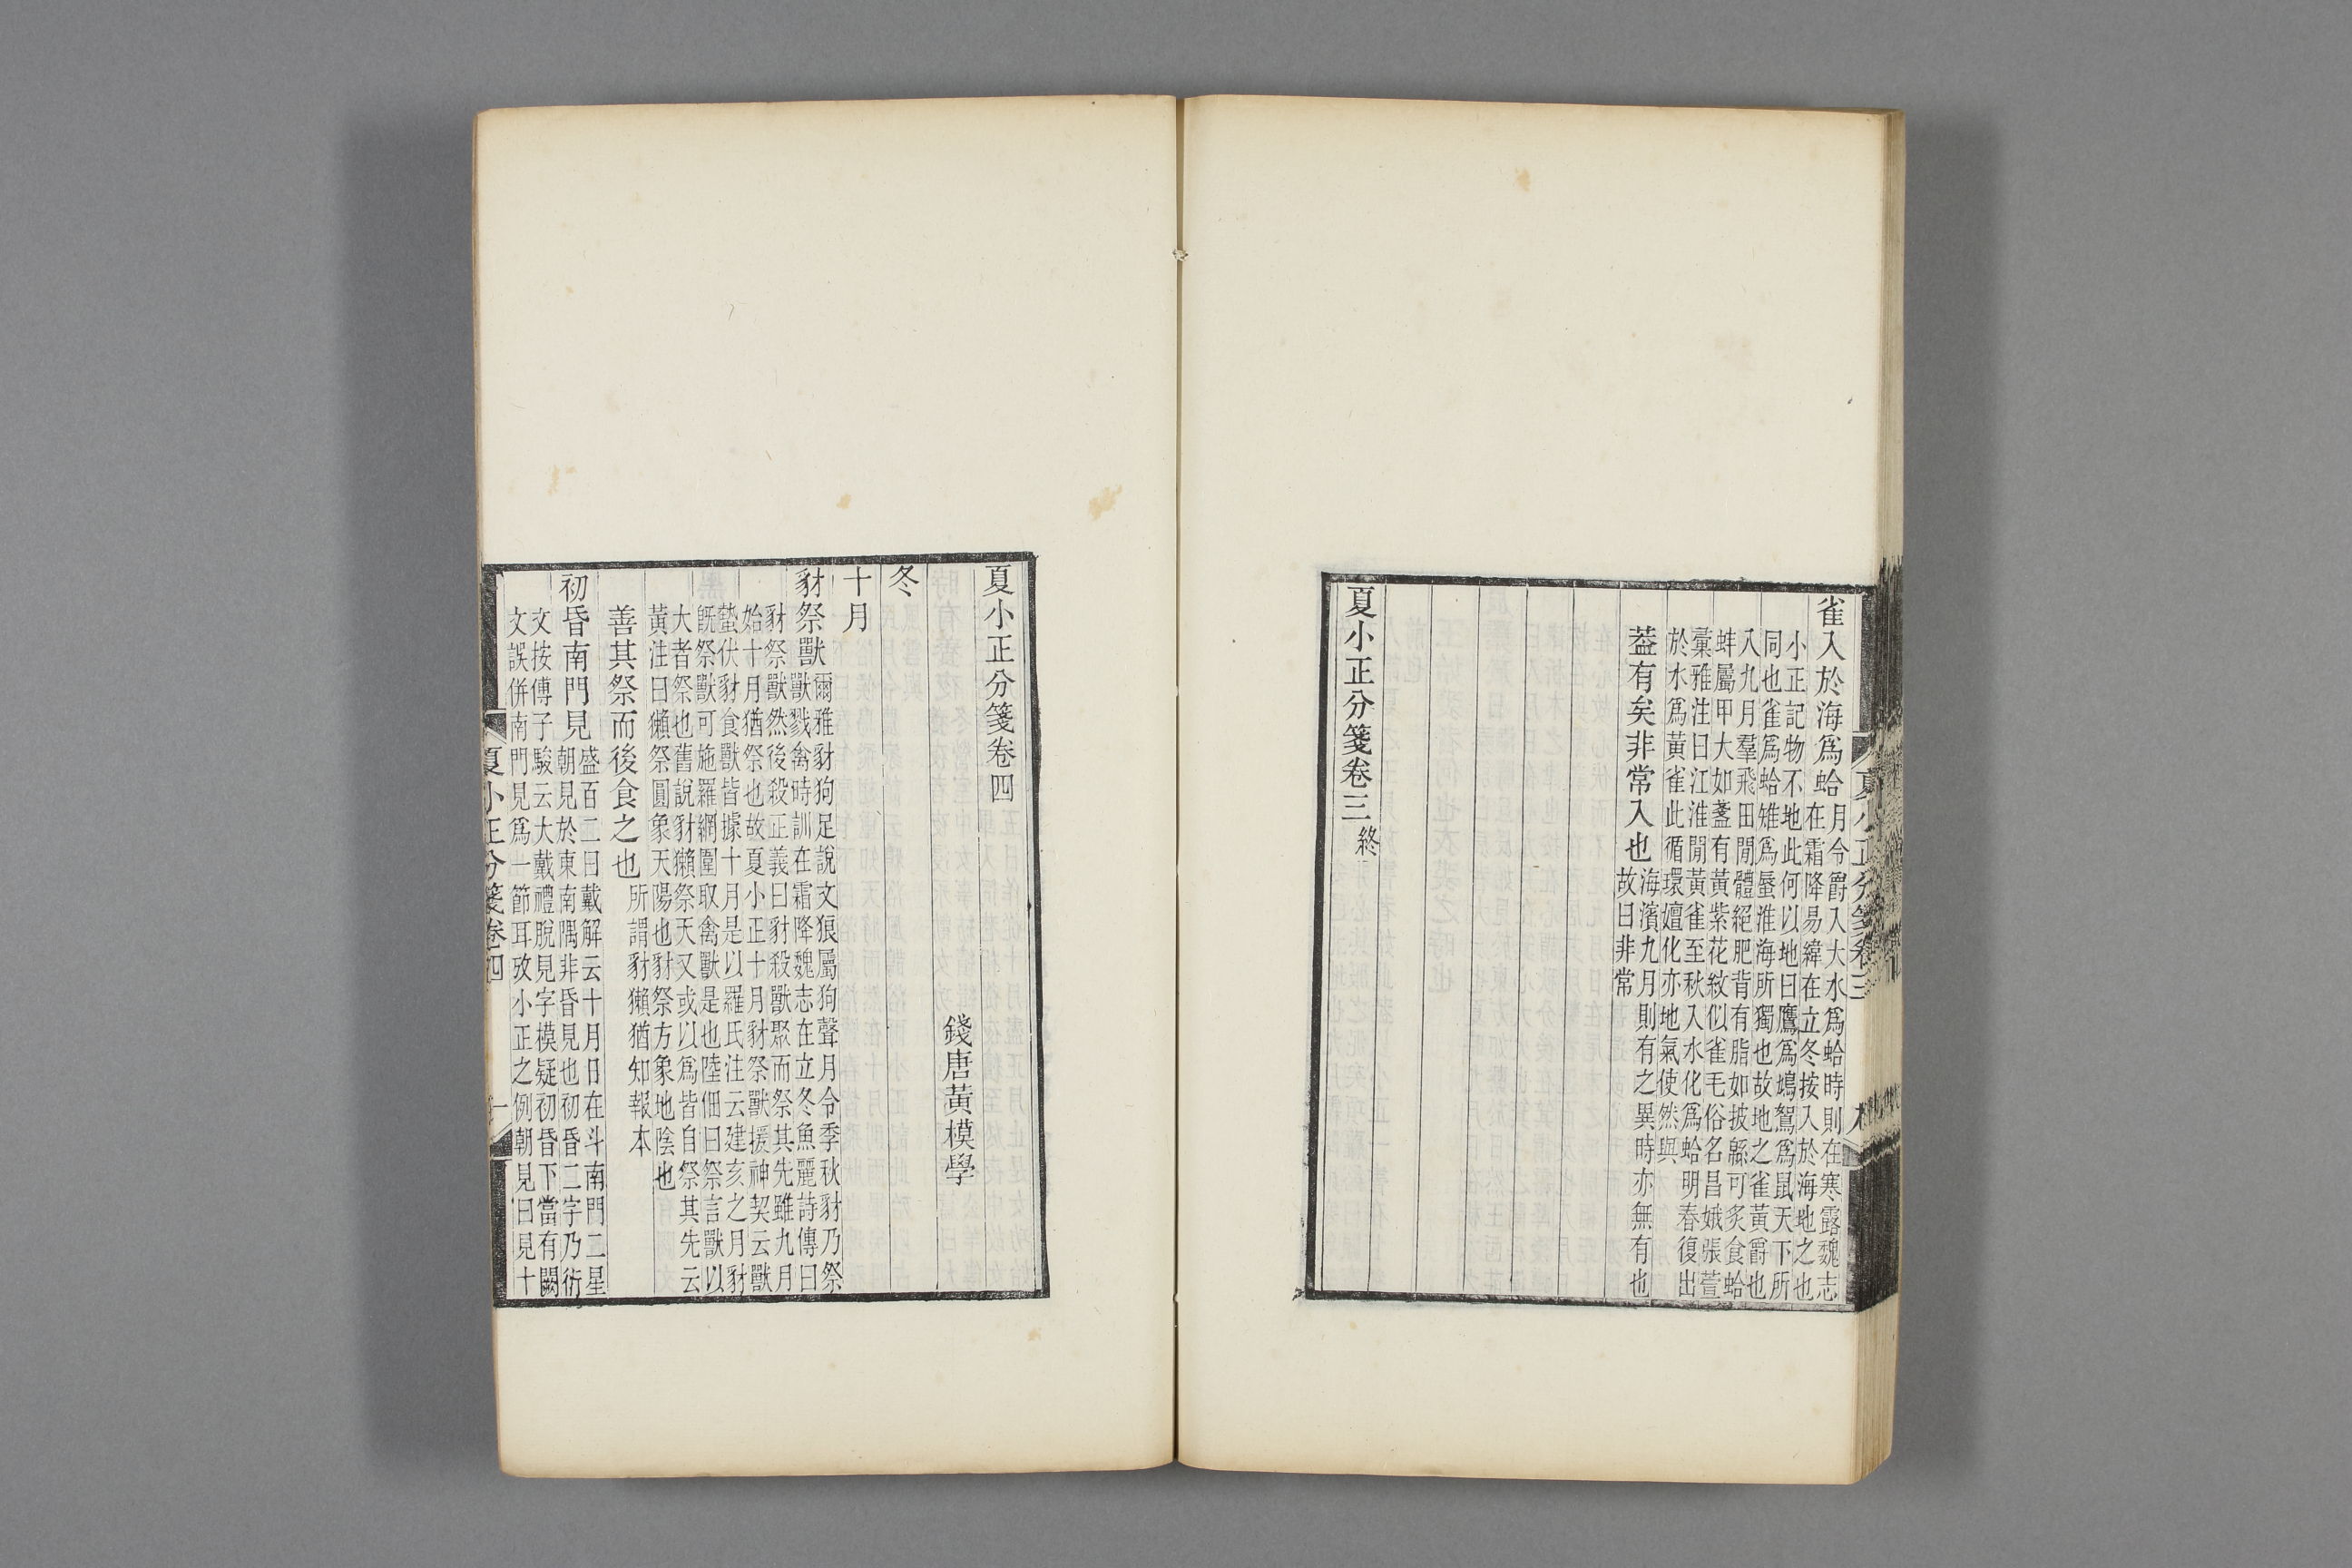 雀入於海爲蛤月令爵入大水爲蛤時則在寒露魏志
在霜降易緯在立冬按入於海地之也
小正記物不地此何以地曰鷹爲鳩鴽爲鼠天下所
同也雀爲蛤雉爲蜃淮海所獨也故地之雀黃爵也
八九月羣飛田閒體絕肥背有脂如披緜可炙食蛤
蚌屬甲大如盞有黃紫花紋似雀毛俗名昌娥張萱
彙雅注曰江淮閒黃雀至秋入水化爲蛤明春復出
於水爲黃雀此循環嬗化亦地氣使然與
葢有矣非常入也海濱九月則有之異時亦無有也
故曰非常
夏小正分箋卷三終
夏小正分箋卷三
夏小正分箋卷四
錢唐黃模學
冬
十月
豺祭獸爾雅豺狗足說文狼屬狗聲月令季秋豺乃祭
獸戮禽時訓在霜降魏志在立冬魚麗詩傳曰
豺祭獸然後殺正義曰豺殺獸聚而祭其先雖九月
始十月猶祭也故夏小正十月豺祭獸援神契云獸
蟄伏豺食獸皆據十月是以羅氏注云建亥之月豺
旣祭獸可施羅網圍取禽獸是也陸佃曰祭言獸以
大者祭也舊說豺獺祭天又或以爲皆自祭其先云
黃注曰獺祭圓象天陽也豺祭方象地陰也
善其祭而後食之也所謂豺獺猶知報本
初昏南門見盛百二曰戴解云十月日在斗南門二星
朝見於東南隅非昏見也初昏二字乃衍
文按傅子駿云大戴禮脫見字模疑初昏下當有闕
文誤併南門見爲一節耳攷小正之例朝見曰見十
夏小正分箋卷四
一